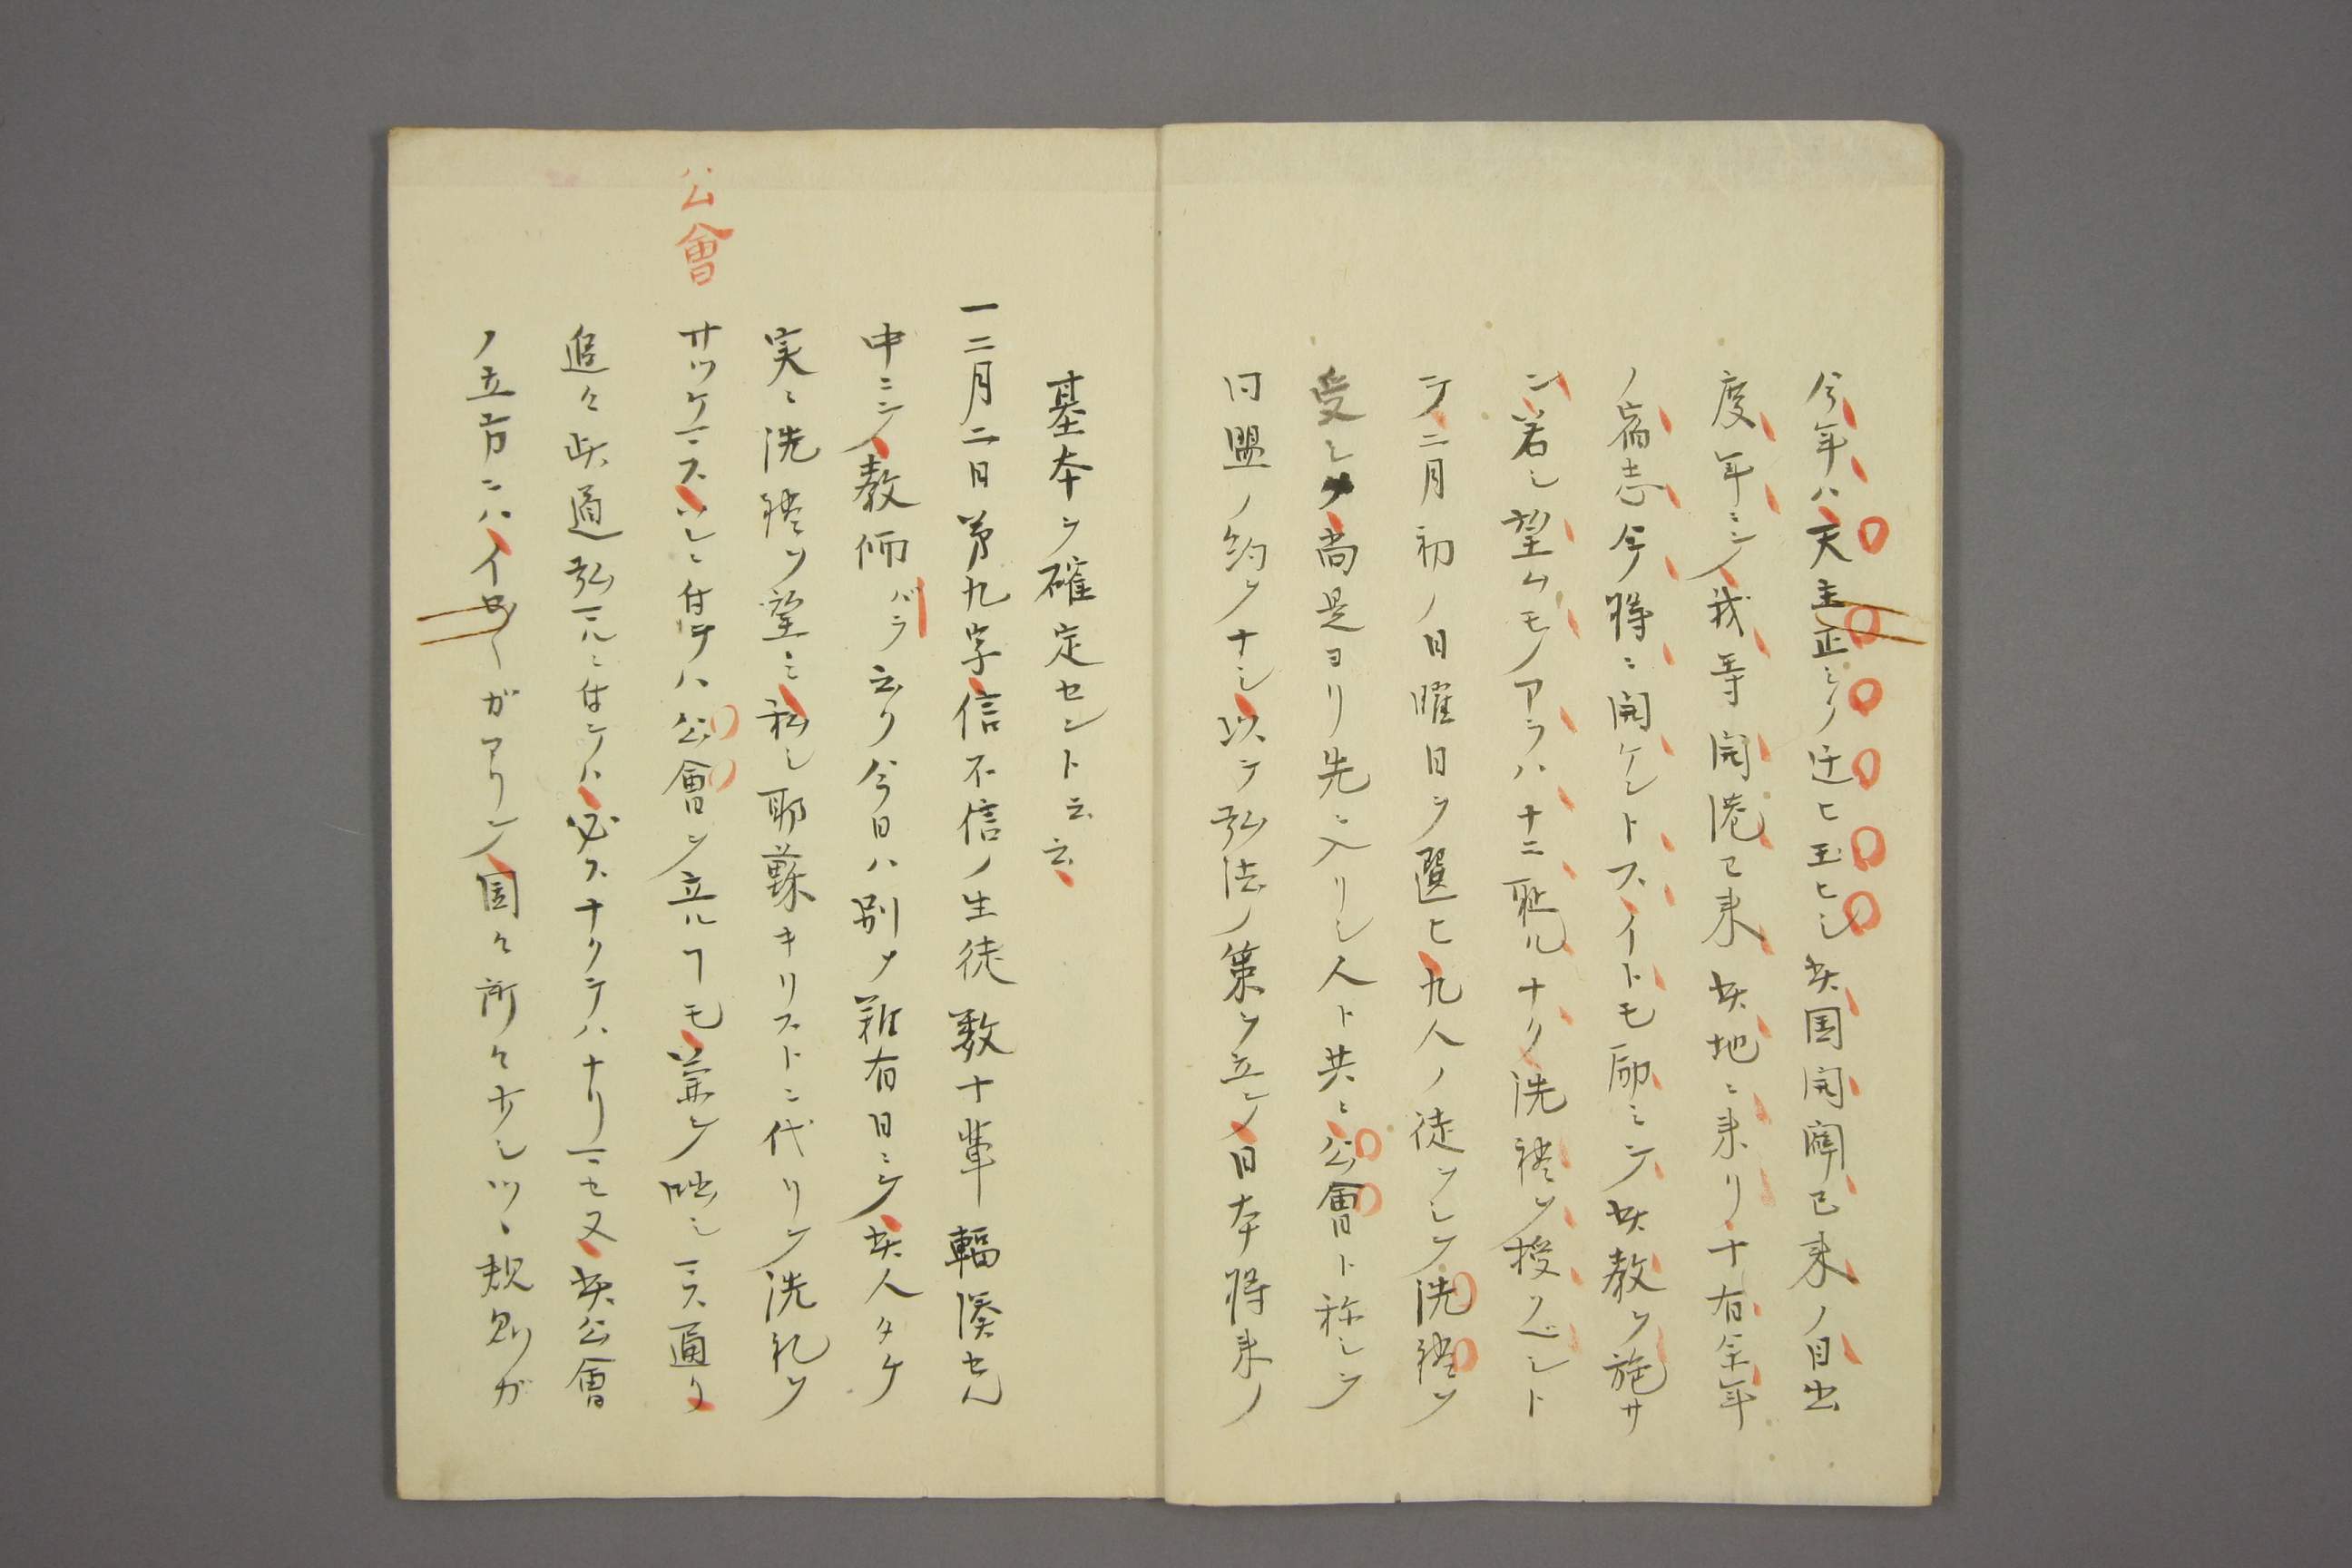 今年ハ天主正シク迋ヒ玉ヒシ其国開闢已来ノ目出
度年ニシテ我等開港已来其地ニ来リ十有余年
ノ宿志今将ニ開ケントスイトモ励ミテ其教ヲ施サ
ン若シ望ムモノアラハ十二聖ルナク洗禮ヲ授クベシト
テ二月初ノ日曜日ヲ選ヒ九人ノ徒ヲシテ洗禮ヲ
受シメ尚是ヨリ先ニ入リシ人ト共ニ公會ト称シテ
同盟ノ約ヲナシ以テ弘法ノ策ヲ立シメ日本将来ノ
基本ヲ確定セント云云
一二月二日第九字信不信ノ生徒数十輩輻湊セル
中ニテ教師バラ云ク今日ハ別メ難有日ニシテ其人タケ
実ニ洗禮ヲ望ミ私シ耶蘇キリストニ代リテ洗礼ヲ
公會
サツケマス〃レニ付テハ公會ヲ立ルヿモ兼テ咄シマス通リ
追々此道弘マルニ付テハ必スナクテハナリマセヌ其公會
ノ立方ニハイロ〳〵ガアリテ国々所々少シツヽ規則ガ